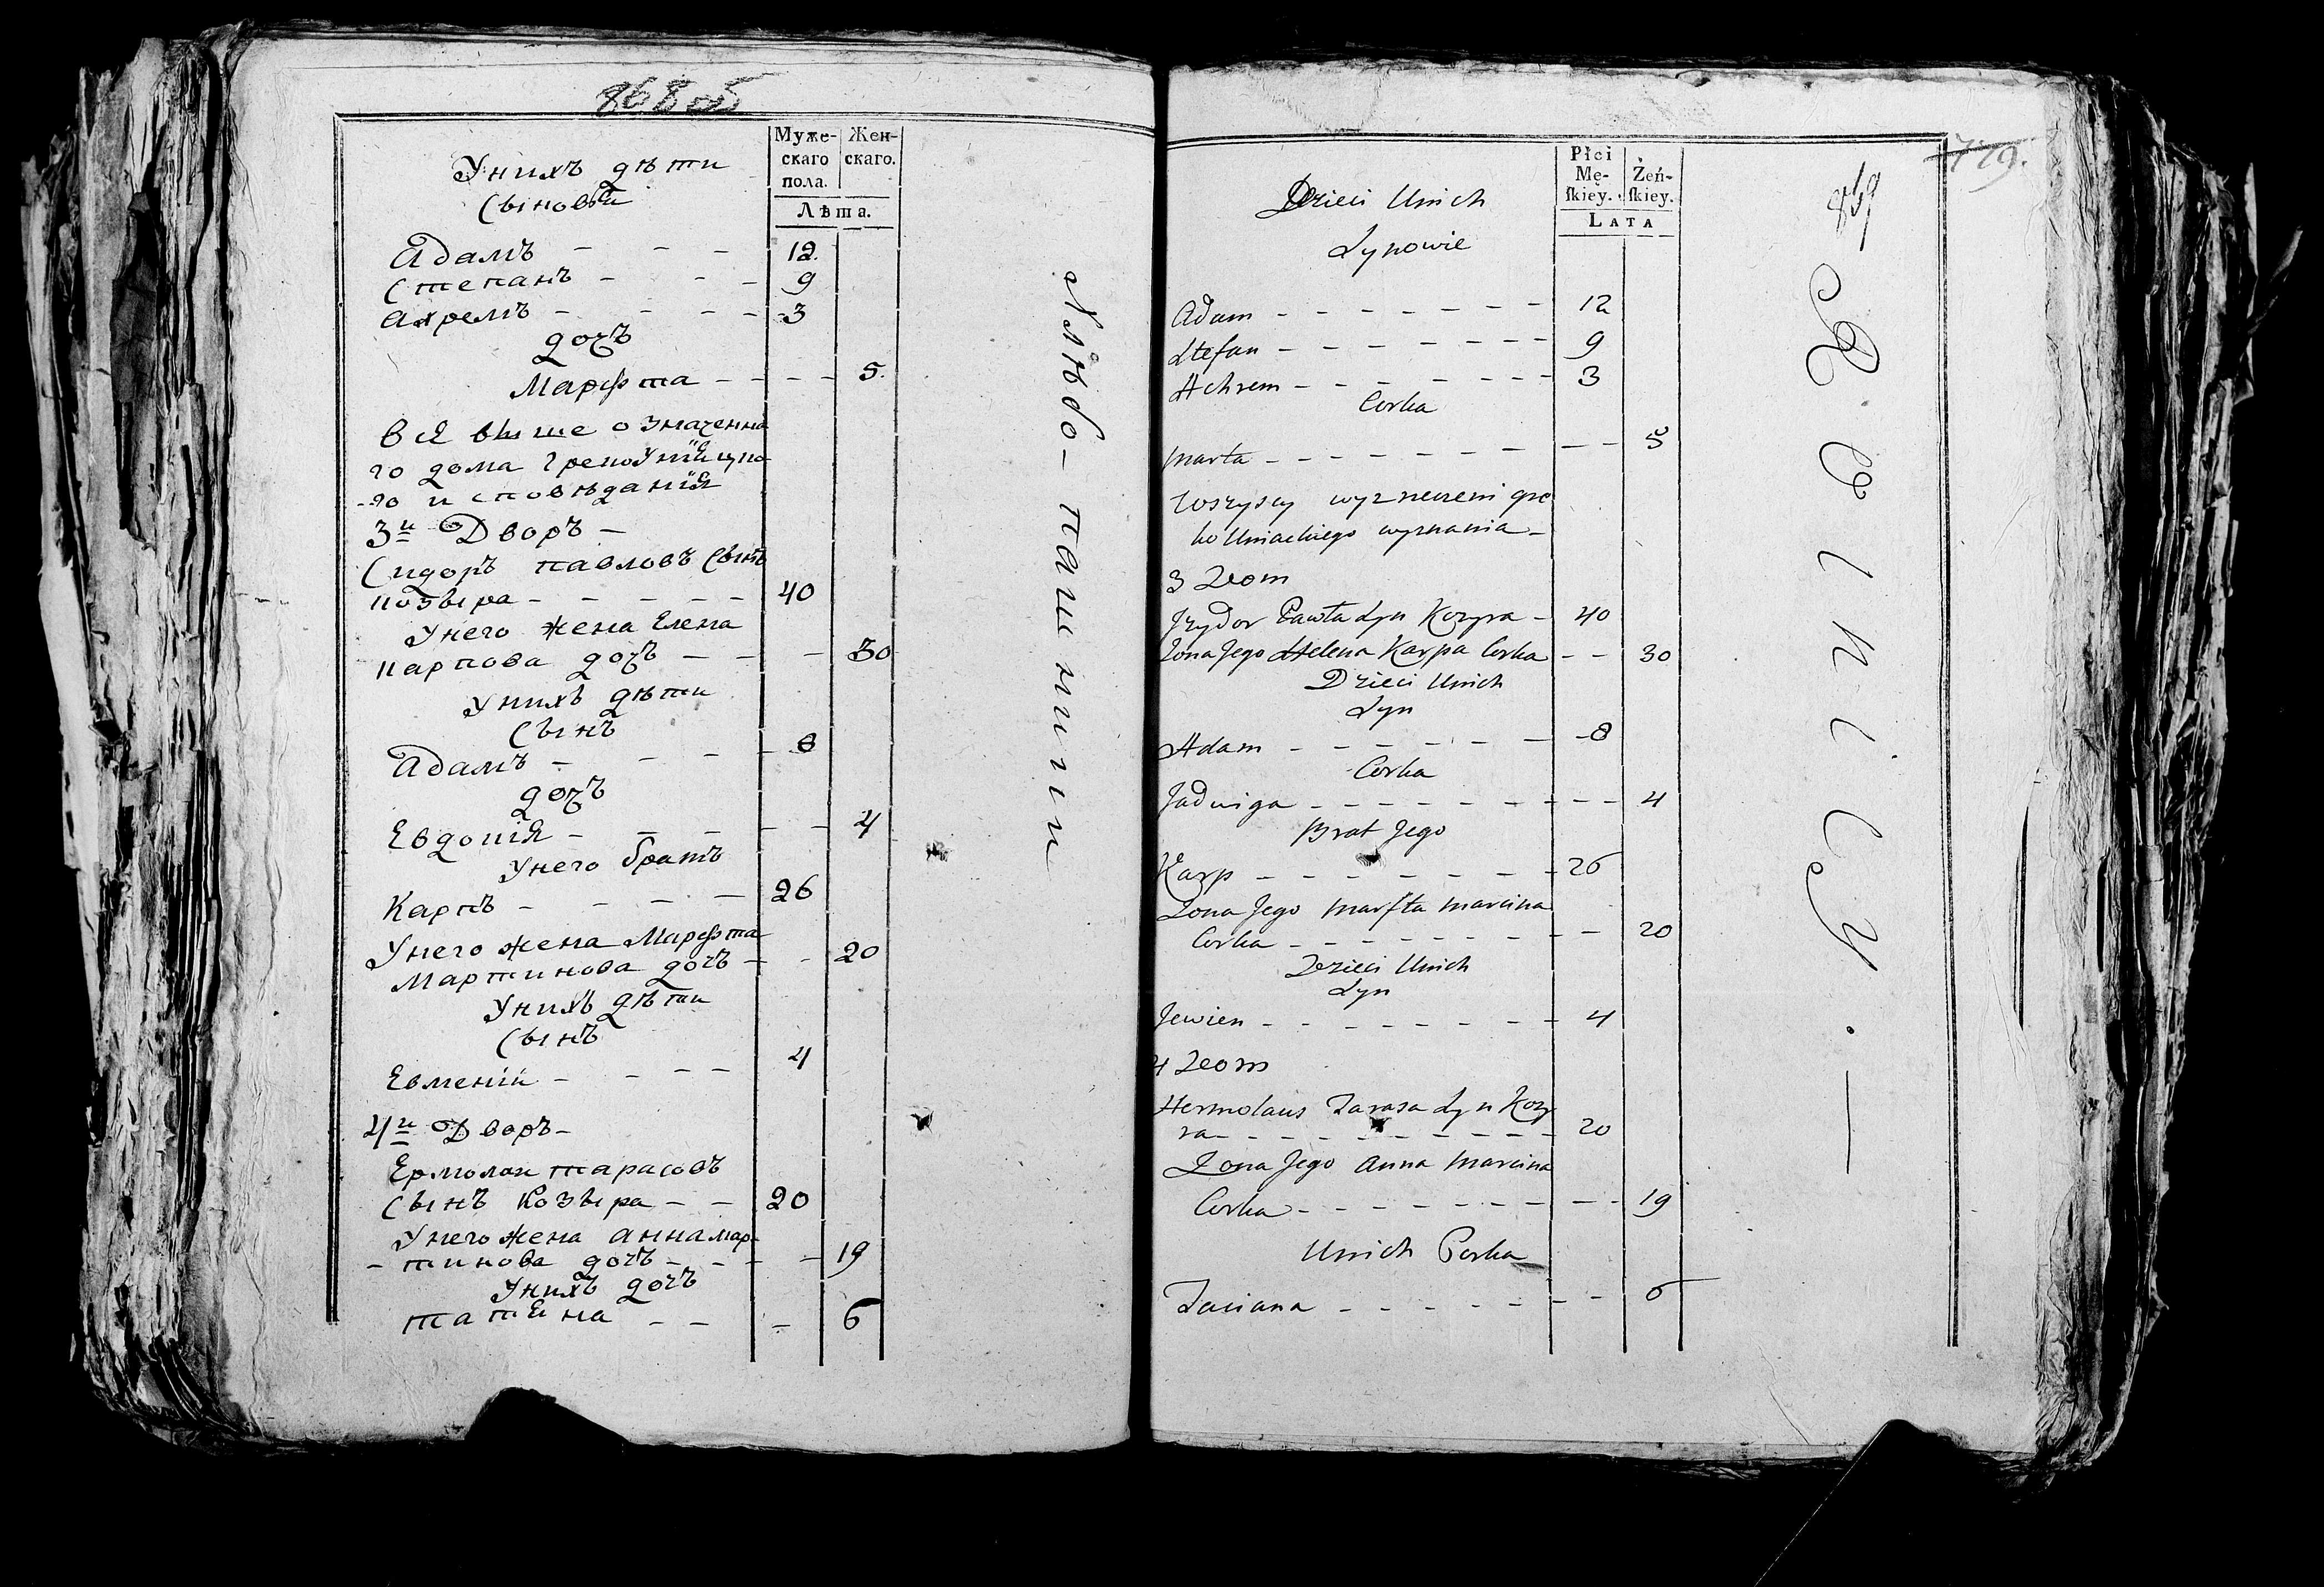 868 об
Муже-
скаго
пола.
Жен-
скаго.
Лѣта.
Унихъ дѣти
Сыновьи
Адамъ - - - 12.
Степанъ - - - 9
Ахремъ - - - - 3
дочъ
Марѳта - - - - 5.
Вся выше означенна
го дома Грекоуніицка
-го исповѣданія
3й Дворъ -
Сидоръ павловъ Сынъ
козыра - - - - - 40
Унего жена Елена
карпова дочъ - - - 30
Унихъ дѣти
Сынъ
Адамъ - - - - 8
дочъ
Евдокія - - - - - 4
Унего братъ
Карпъ - - - - 26
Унего жена Марѳта
Мартинова дочъ - - 20
Унихъ дѣти
Сынъ
Евменій - - - - 4
4й Дворъ -
Ермолай тарасовъ
Сынъ Козыра - - 20
Унего жена анна мар-
- тинова дочъ - - - - 19
Унихъ дочъ
татяна - - - 6
Хлѣбо-пашники
779.
Płci
Mę-
ſkiey.
Żeń-
ſkiey.
LATA
Dzieci Unich
Synowie
Adam - - - - - - - 12
Stefan - - - - - - - 9
Achrem - - - - - - - 3
Corka
Marta - - - - - - - - - 5
Wszyscy wyznewieni gre
ko Uniackiego wyznania -
3 Dom
Jzydor Pawła Syn Kozyra - 40
Zona Jego Helena Karpa Corka - - 30
Dzieci Unich
Syn
Adam - - - - - - - 8
Corka
Jadwiga - - - - - - - - - - 4
Brat Jego
Karp - - - - - - - - 26
Zona Jego Marfta Marcina
Corka - - - - - - - - - 20
Dzieci Unich
Syn
Jewien - - - - - - - - 4
4 Dom
Hermolaus Tarasa Syn Kozy
ra - - - - - - - - - - 20
Zona Jego Anna Marcina
Corka - - - - - - - - - 19
Unich Corka
Taciana - - - - - - - - 6
Rolnicy. —